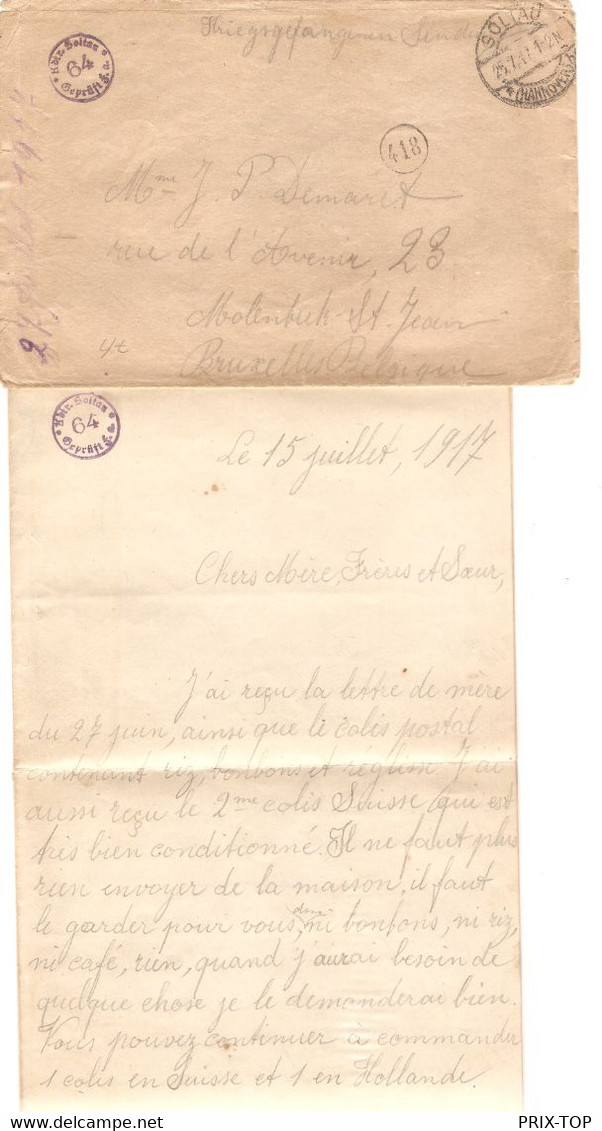 Kdtr. Soltau
64
Geprüft F. a.
Kriegsgefangenen Sendung
SOLTAU
25.7.17. 1-2N
(HANNOVER)
418
Mme J. P. Demaret
rue de l'Avenir, 23
Molenbeek-St. Jean
Bruxelles Belgique
Kdtr. Soltau
64
Geprüft F. a.
Le 15 juillet, 1917
Chers Mère, Frères et Sœur,
J'ai reçu la lettre de mère
du 27 juin, ainsi que le colis postal
contenant riz, bonbons et réglisse. J'ai
aussi reçu le 2me colis Suisse, qui est
très bien conditionné. Il ne faut plus
rien envoyer de la maison, il faut
le garder pour vous, ni bonbons, ni riz,
ni café, rien, quand j'aurai besoin de
quelque chose je le demanderai bien.
Vous pouvez continuer à commander
1 colis en Suisse et 1 en Hollande.
PRIX-TOP